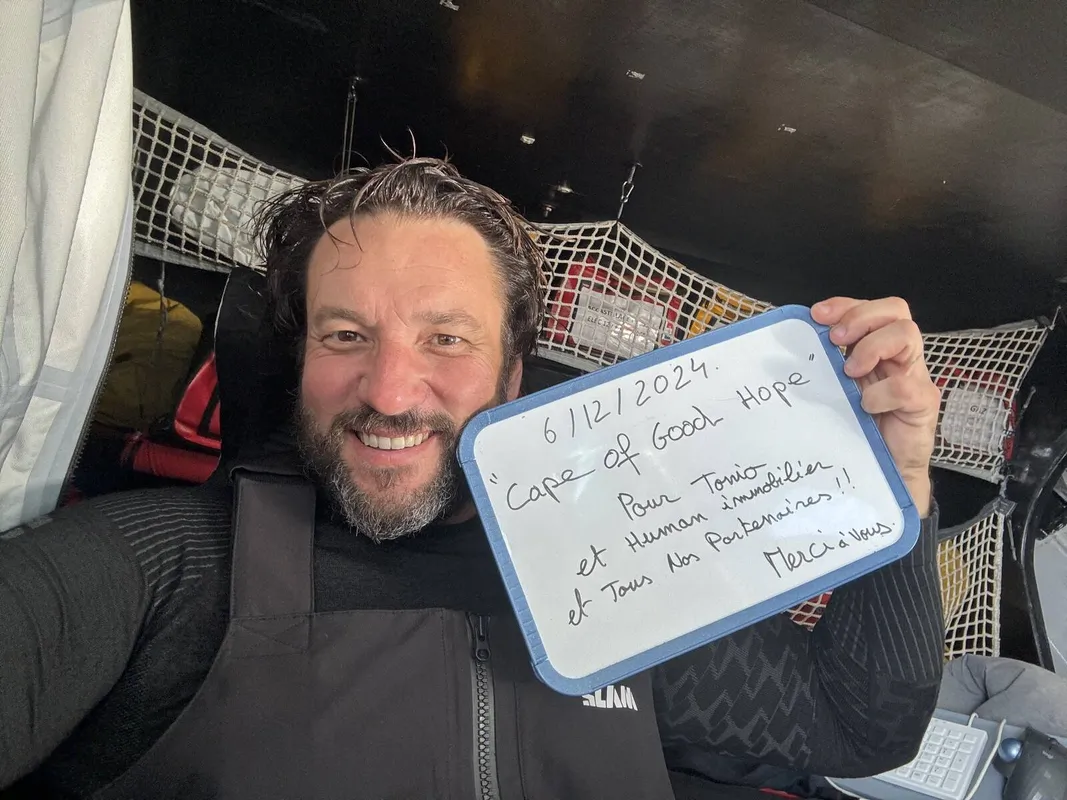 6/12/2024.
"Cape of Good Hope"
Pour Tonio
et Human immobilier
et Tous Nos Partenaires!!
Merci à Vous.
SLAM